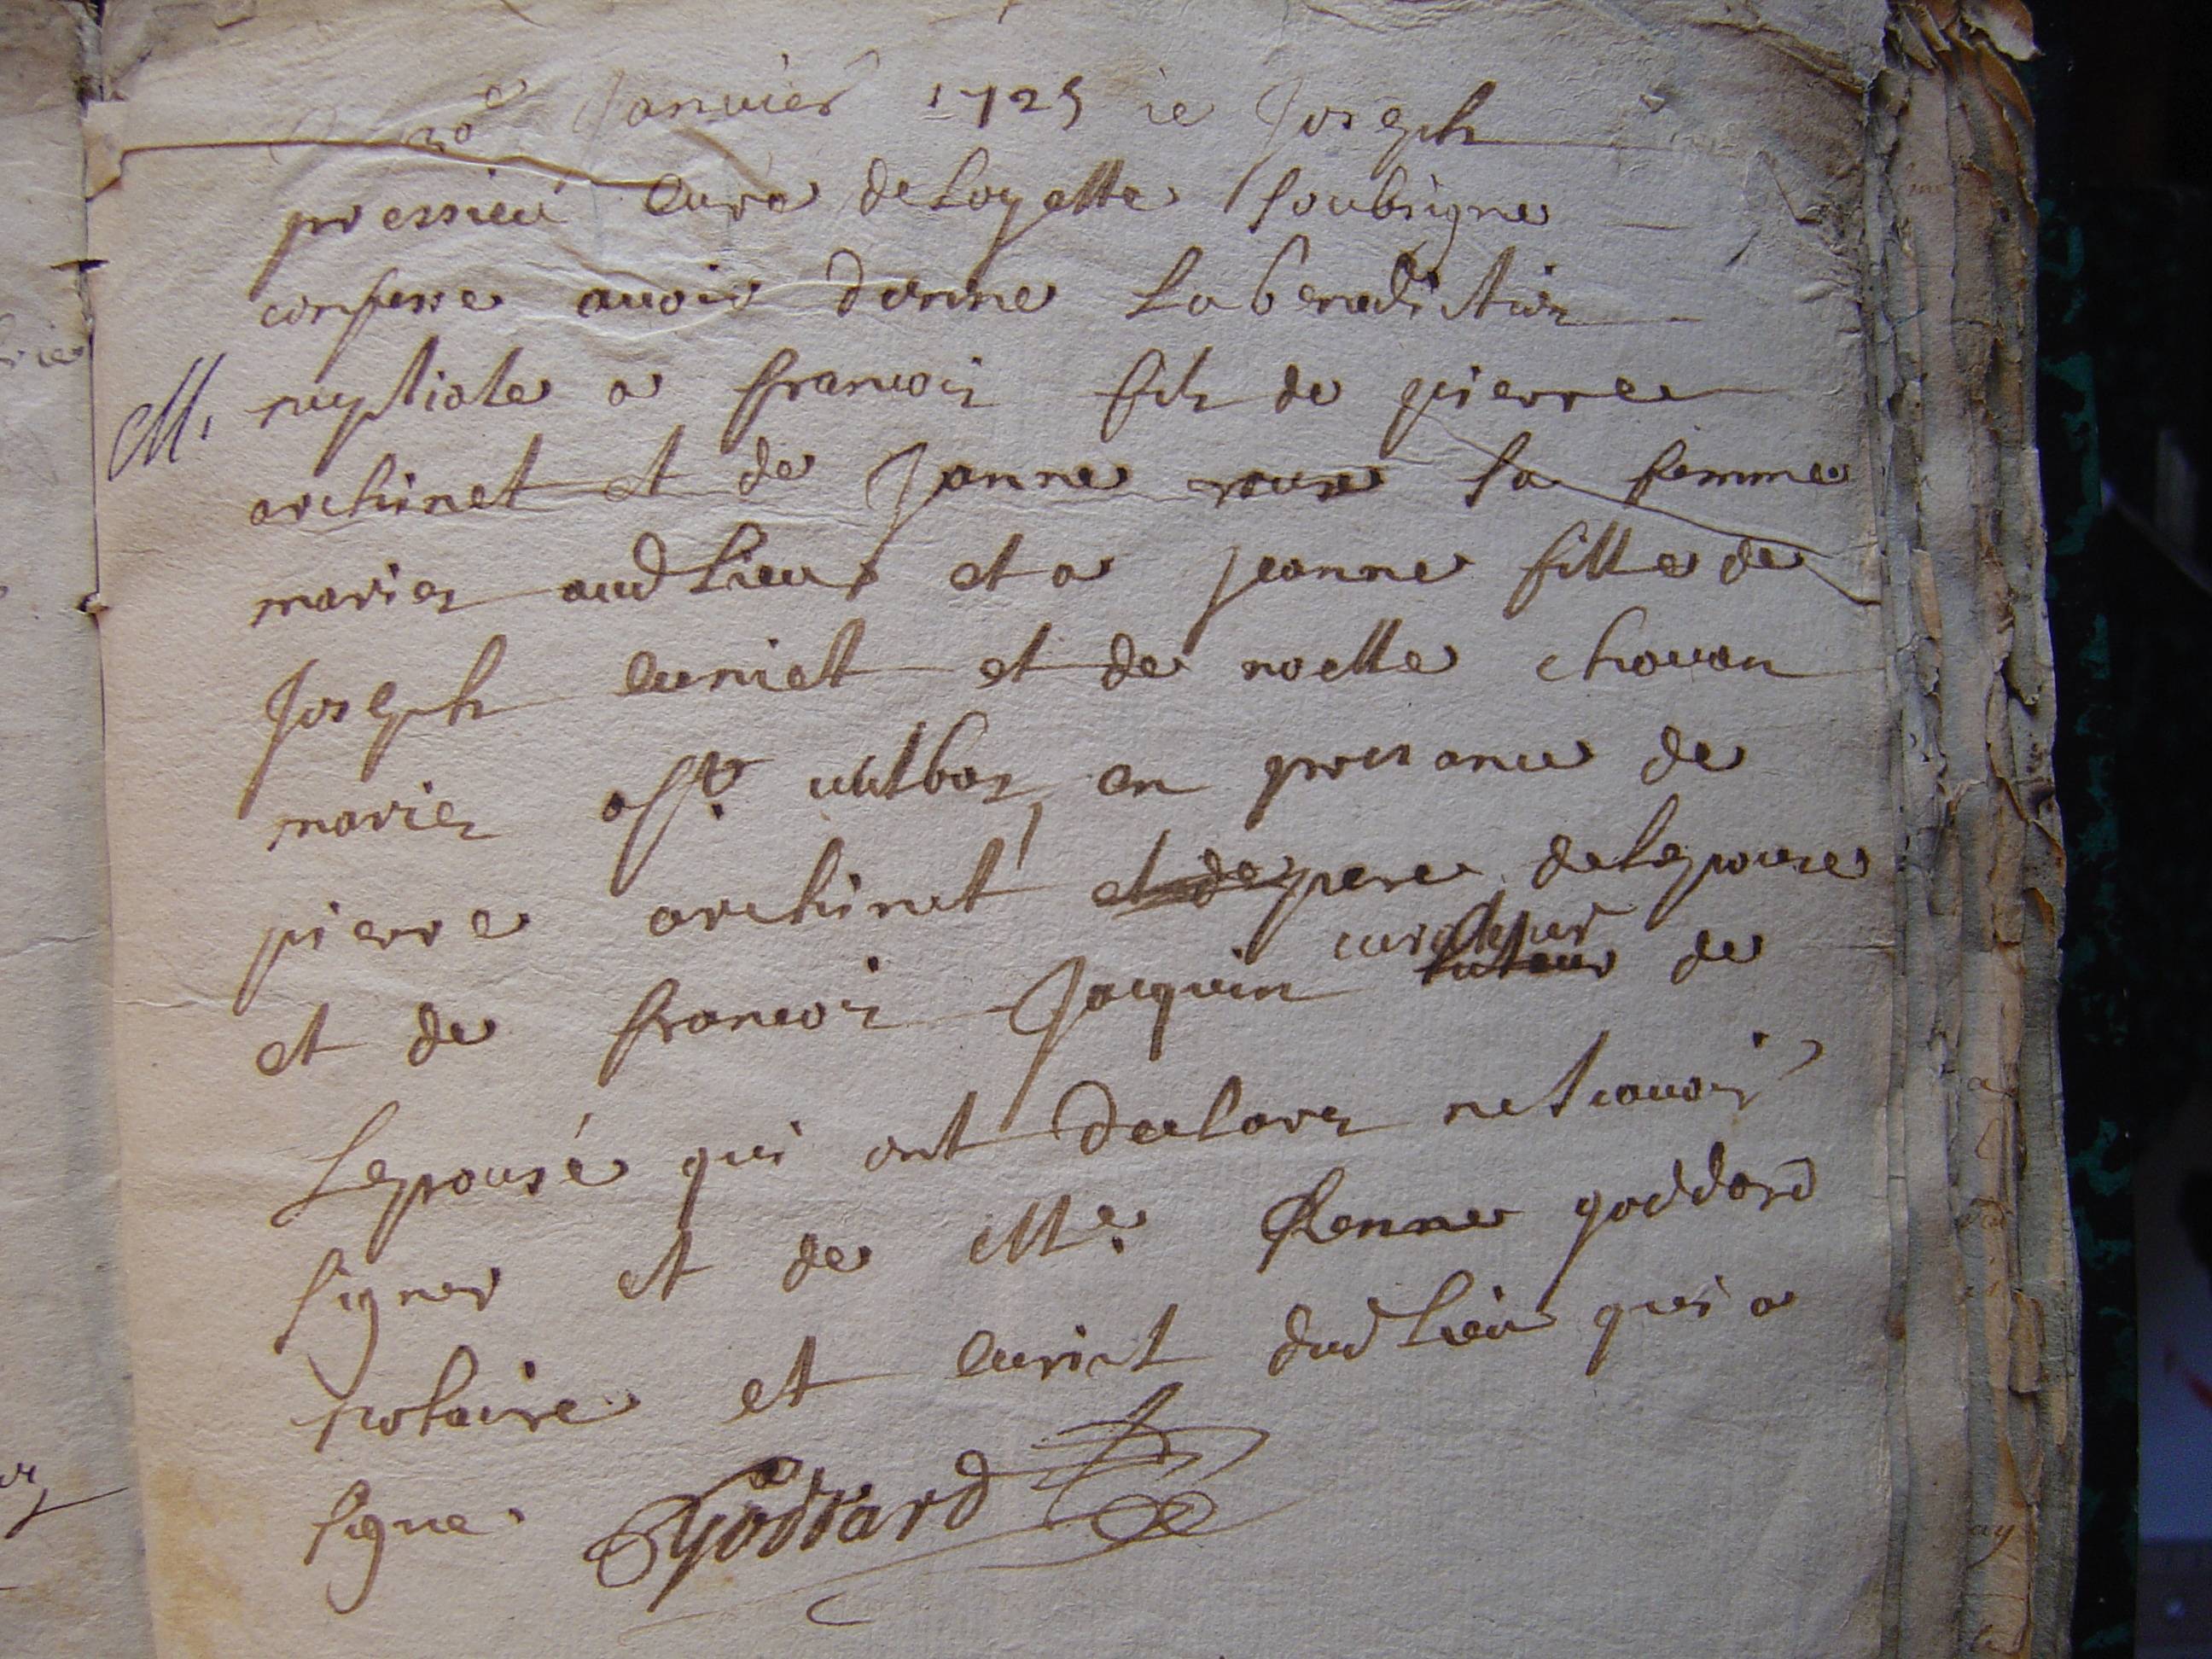 30e Janvier 1725 ie Joseph
pressieu Cure de Loyette soubsigne
confesse avoir donne La benediction
M. nuptiale a francois fils de pierre
archinet et de Janne roux sa femme
maries aud Lieu et a Jeanne fille de
Joseph Cuniet et de noelle chovan
maries a St vulbas, en presance de
pierre archinet et de pere de Lepouse
et de francois Jacquin curateur tuteur de
Lepousé qui ont declares ne scavoir
signer et de Me Renne goddard
notaire et Curiet dud Lieu qui a
signe. Goddard